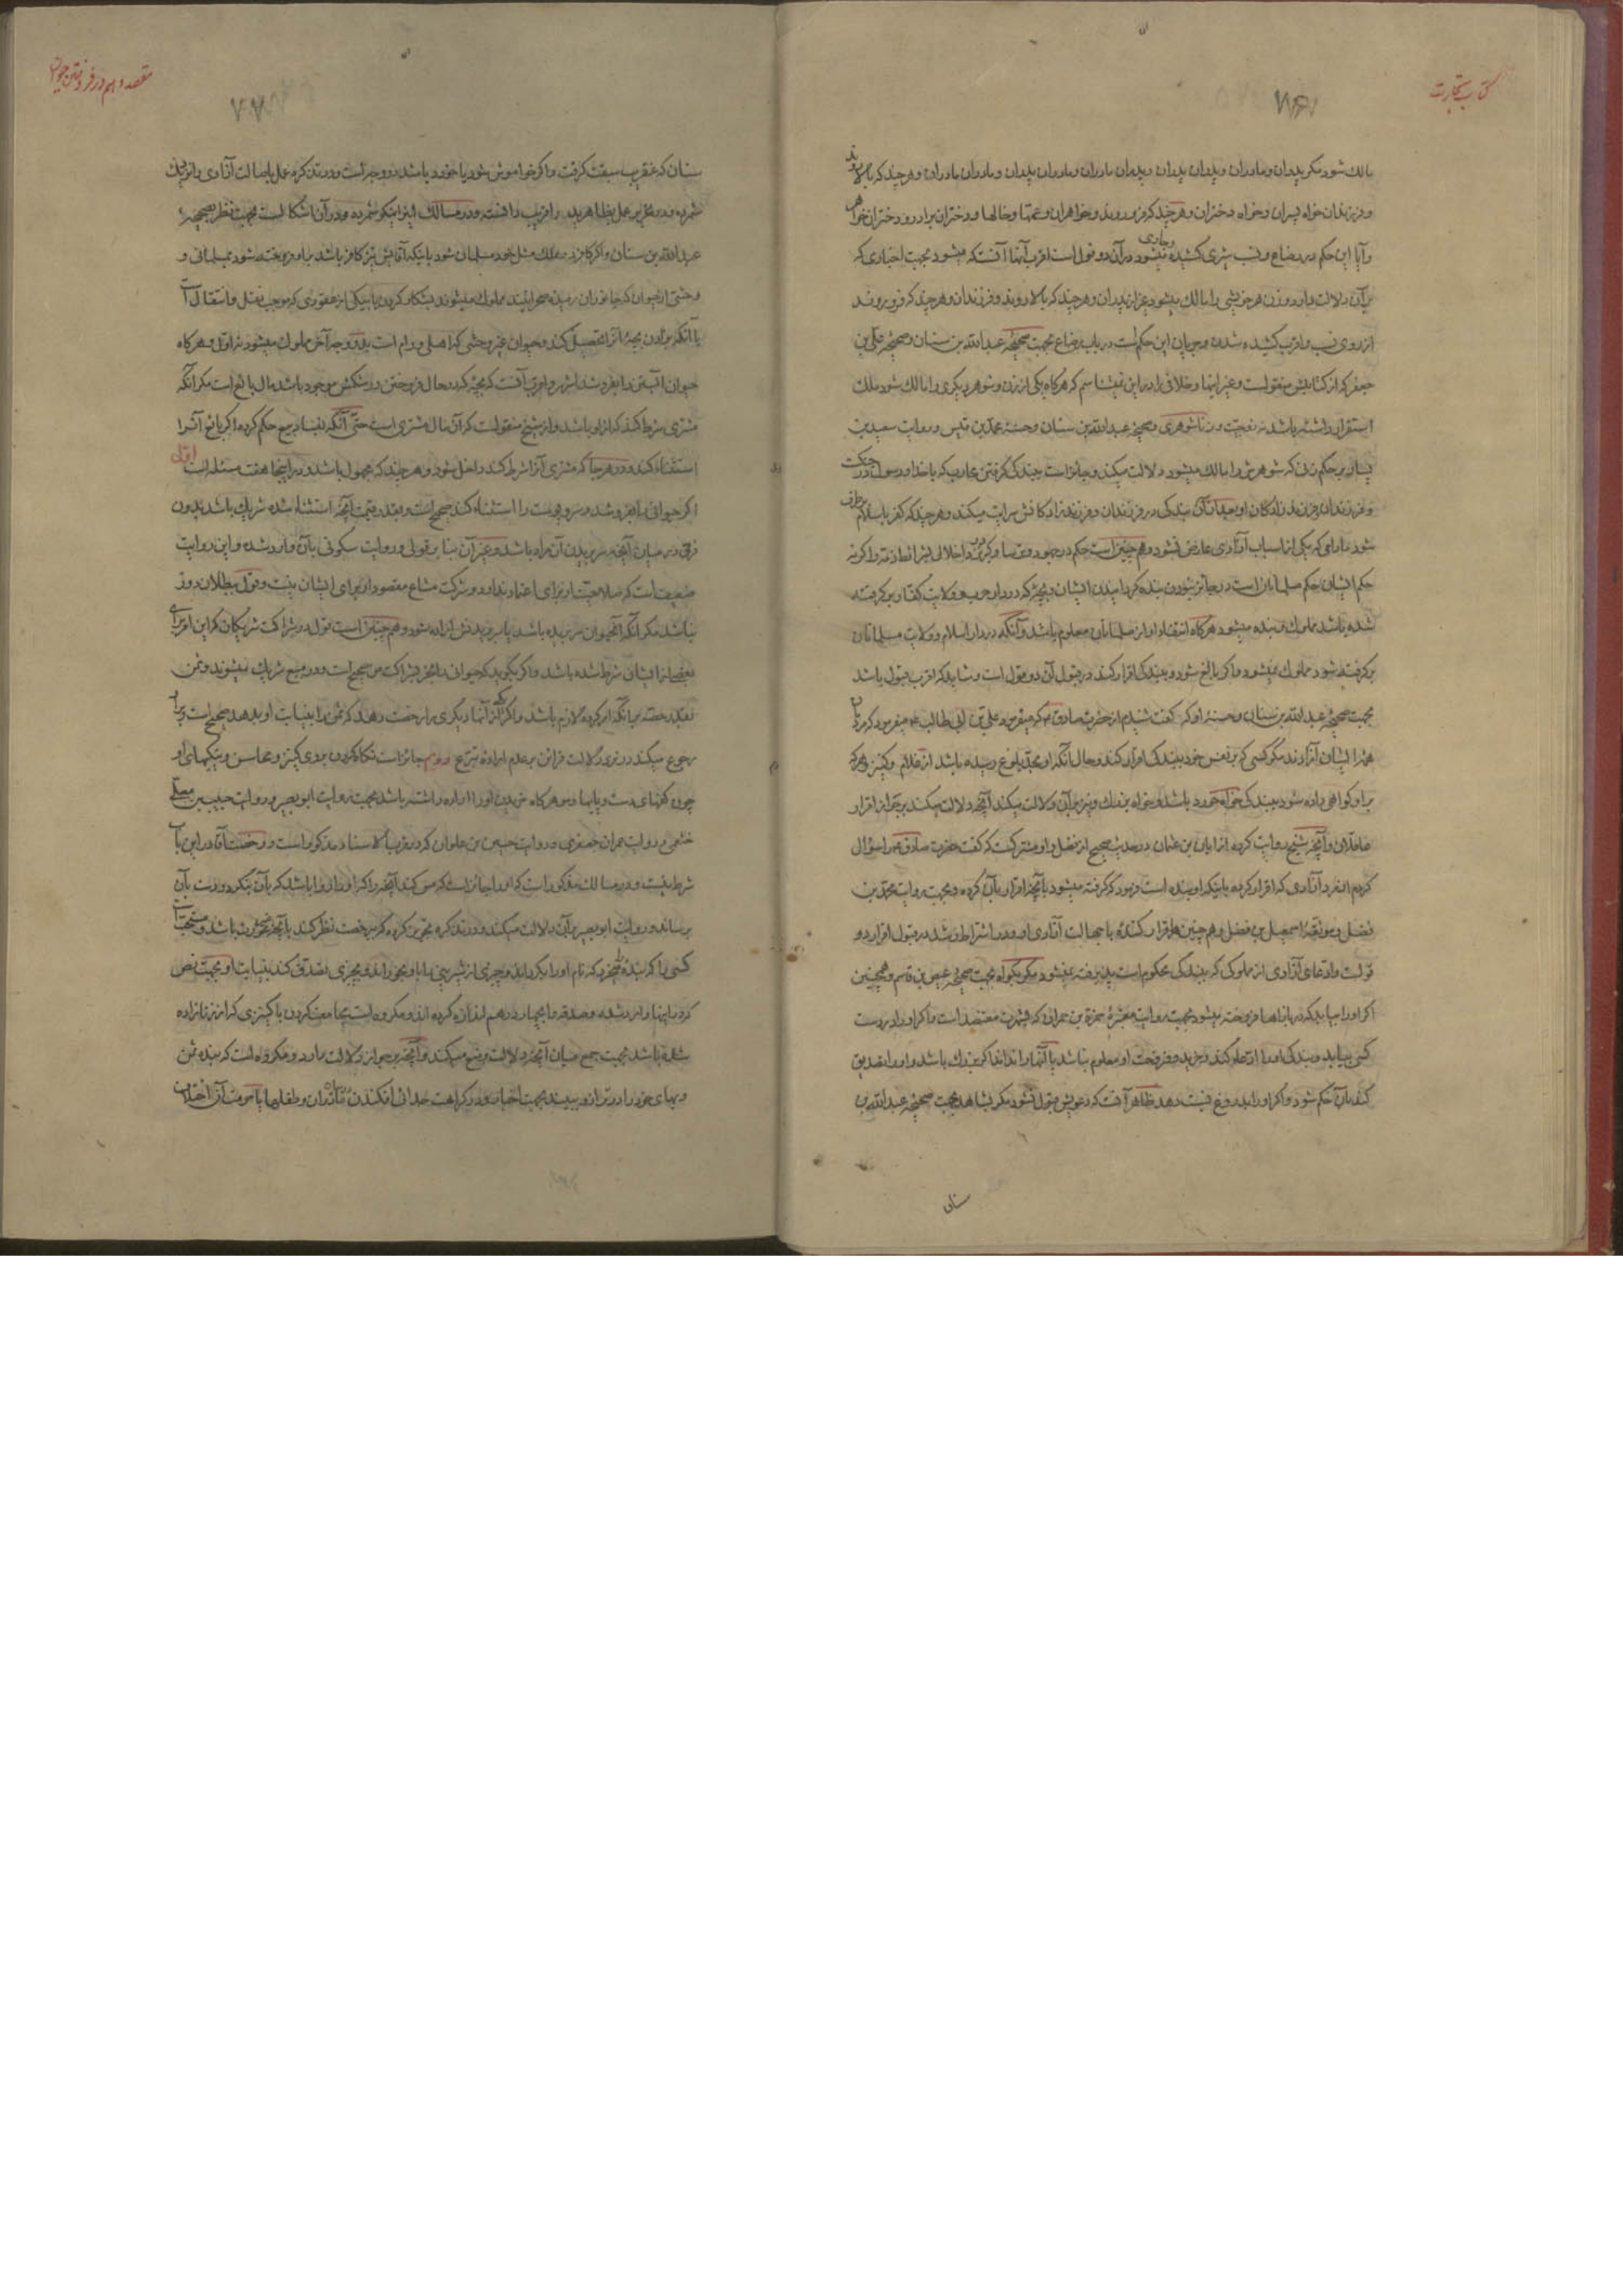 کتاب تجارت
مالک شود مکر پدران و مادران و پدران پدران و پدران مادران و مادران پدران و مادران مادران و هرچند که بالا روند
و فرزندان خواه پسران و خواه دختران و هرچند که فرو روند و خواهران و عمتها و خالها و دختران برادر و دختران خواهر
و آیا این حکم در رضاع و نسب شرعی کشیده میشود در آن دو قول است اقرب آنها آنست که میشود بجهت اخباری که
بر آن دلالت دارد و زن هر خویشی را مالک میشود غیر از پدران و هرچند که بالا روند و فرزندان و هرچند که فرو روند
از روی نسب و اقرب کشیده شدن و جریان این حکم است در باب رضاع بجهت صحیحه عبدالله بن سنان و صحیحه علی بن
جعفر که از کتابش منقولست و غیر اینها و خلافی را در این نمیشناسم که هرکاه یکی از زن و شوهر دیکری را مالک شود ملک
استقرار داشته باشد نه زوجیت و زناشوهری و صحیحه عبدالله بن سنان و حسنه محمد بن قیس و روایت سعید بن
یسار بر حکم زنی که شوهرش را مالک میشود دلالت میکند و جایز است ببندکی کرفتن محارب که با خدا و رسول در جنکست
و فرزندان و فرزندزادکان او بعد از آن بندکی در فرزندان و فرزندزادکانش سرایت میکند و هرچند که کفر باسلام برطرف
شود مادامی که یکی از اسباب آزادی عارض نشود و همچنین است حکم در یهود و نصارا و کبران با اخلال بشرائط ذمه و اکر نه
حکم ایشان حکم مسلمانان است در جایز نبودن بنده کردانیدن ایشان و بچه که در دار حرب و ولایت کفار برکرفته
شده باشد مملوک و بنده میشود هرکاه انتفاء او از مسلمانان معلوم باشد و آنکه در دار اسلام و ولایت مسلمانان
برکرفته شود مملوک نمیشود و اکر بالغ شود و ببندکی اقرار کند در قبول آن دو قول است و شاید که اقرب قبول باشد
بجهت صحیحه عبدالله بن سنان و حسنه او که کفت شنیدم از حضرت صادق ع که میفرمود علی بن ابی طالب ع میفرمود که مردمان
همه ایشان آزادند مکر کسی که بر نفس خود ببندکی اقرار کند و حال آنکه او بحد بلوغ رسیده باشد از غلام و کنیز و هرکه
بر او کواهی داده شود ببندکی خواه خورد باشد و خواه بزرک و نیز بر آن دلالت میکند آنچه دلالت میکند بر جواز اقرار
عاقلان و آنچه شیخ روایت کرده از ابان بن عثمان در حدیث صحیح از فضل و او مشترکست که کفت حضرت صادق ع را سؤالی
کردم از مرد آزادی که اقرار کرده باینکه او بنده است فرمود که کرفته میشود بآنچه اقرار بآن کرده و بجهت روایت محمد بن
فضل و موثقه اسمعیل بن فضل و همچنین اقرار کننده با جهالت آزادی او و در اشتراط رشد در قبول اقرار دو
قولست و ادعای آزادی از مملوکی که ببندکی محکوم است پذیرفته نمیشود مکر بکواه بجهت صحیحه عیص بن قاسم و همچنین
اکر او را بیابد که در بازارها فروخته میشود بجهت روایت معتبره حمزة بن حمران که بشهرت معتضد است و اکر او را در دست
کسی بیابد و بندکی او را ادعا کند و خرید و فروخت او معلوم نباشد یا آنها را نداند اکر بزرک باشد و او را تصدیق
کند بآن حکم شود و اکر او را بدروغ نسبت دهد ظاهر آنست که دعویش قبول نشود مکر بشاهد بجهت صحیحه عبدالله بن
سنان
مقصد دهم در فروختن حیوان
سنان که عنقریب سبقت کرفت و اکر خواموش شود یا خورد باشد دو وجه است و در تذکره عمل باصالت آزادی را نزدیک
شمرده و در تحریر عمل بظاهر ید را قریب دانسته و در مسالک نیز اینرا نیکو شمرده و در آن اشکالیست بجهت نظر بصحیحه
عبدالله بن سنان و اکر کافر در ملک مثل خود مسلمان شود یا اینکه آقایش نیز کافر باشد باو فروخته شود بمسلمانی و
وحشی از حیوان که جانوران رمیده صحرایند مملوک میشوند بشکار کردن یا بیکی از عقودی که موجب نقل و انتقال است
یا آنکه بزادن بچه آنرا تحصیل کند و حیوان غیر وحشی که اهلی و رام است بدو وجه آخر مملوک میشود نه اول و هرکاه
حیوان آبستن را بفروشد اشهر و اقرب آنست که بچه که در حال فروختن در شکمش موجود باشد مال بایع است مکر آنکه
مشتری شرط کند که از او باشد و از شیخ منقولست که آن مال مشتری است حتی آنکه بفساد بیع حکم کرده اکر بایع آنرا
استثناء کند و در هرجا که مشتری آنرا شرط کند داخل شود و هرچند که مجهول باشد و در اینجا هفت مسئله است اول
اکر حیوانی را بفروشد و سر و پوست را استثناء کند صحیح است و بقدر قیمت آنچه استثناء شده شریک باشد بدون
فرقی در میان آنچه سر بریدن آن مراد باشد و غیر آن بنا بر قولی و روایت سکونی بآن وارد شده و این روایت
ضعیف است که صلاحیت از برای اعتماد ندارد و شرکت مشاع مقصود از برای ایشان نیست و قول ببطلان دور
نباشد مکر آنکه آنحیوان سر بریده باشد یا سر بریدنش اراده شود و همچنین است قول در شراکت شریکان که این امر برای
بعضی از ایشان شرط شده باشد و اکر بکوید که حیوانی را بخر بشراکت من صحیح است و در مبیع شریک میشوند و ثمن
بقدر حصه بر آنکه امر کرده لازم باشد و اکر یکی از آنها دیکری را رخصت دهد که ثمن را بنیابت او بدهد صحیح است و بر او
رجوع میکند در نبودن دلالت قراین بر عدم اراده تبرع دویم جایز است نکاه کردن بروی کنیز و محاسن و نیکیهای او
چون کفهای دست و پاها و موی هرکاه خریدن او را اراده داشته باشد بجهت روایت ابوبصیر و روایت حبیب بن معلی
خثعمی و روایت عمران جعفری و روایت حسین بن علوان که در قرب الاسناد مذکور است و رخصت آقا در این باب
شرط نیست و در مسالک مذکور است که او را جایز است که مس کند آنچه را که او را روا باشد که بآن بنکرد و دست بآن
برساند و روایت ابوبصیر بر آن دلالت میکند و در تذکره تجویز کرده که برخصت نظر کند بآنچه عورت باشد و مستحبست
کسی را که بنده بخرد که نام او را بکرداند و چیزی از شیرینی باو بخوراند و بچیزی تصدق کند بنیابت او بجهت نص
که در اینها وارد شده و صدقه را بچهار درهم اندازه کرده اند و مکروه است مجامعت کردن با کنیزی که از زنا زاده
شده باشد بجهت جمع میان آنچه دلالت بر منع میکند و آنچه بر جواز دلالت دارد و مکروه است که بنده ثمن
و بهای خود را در ترازو ببیند بجهت اخبار و در کراهت جدائی افکندن مادران و طفلها یا حرمت آن اختلاف